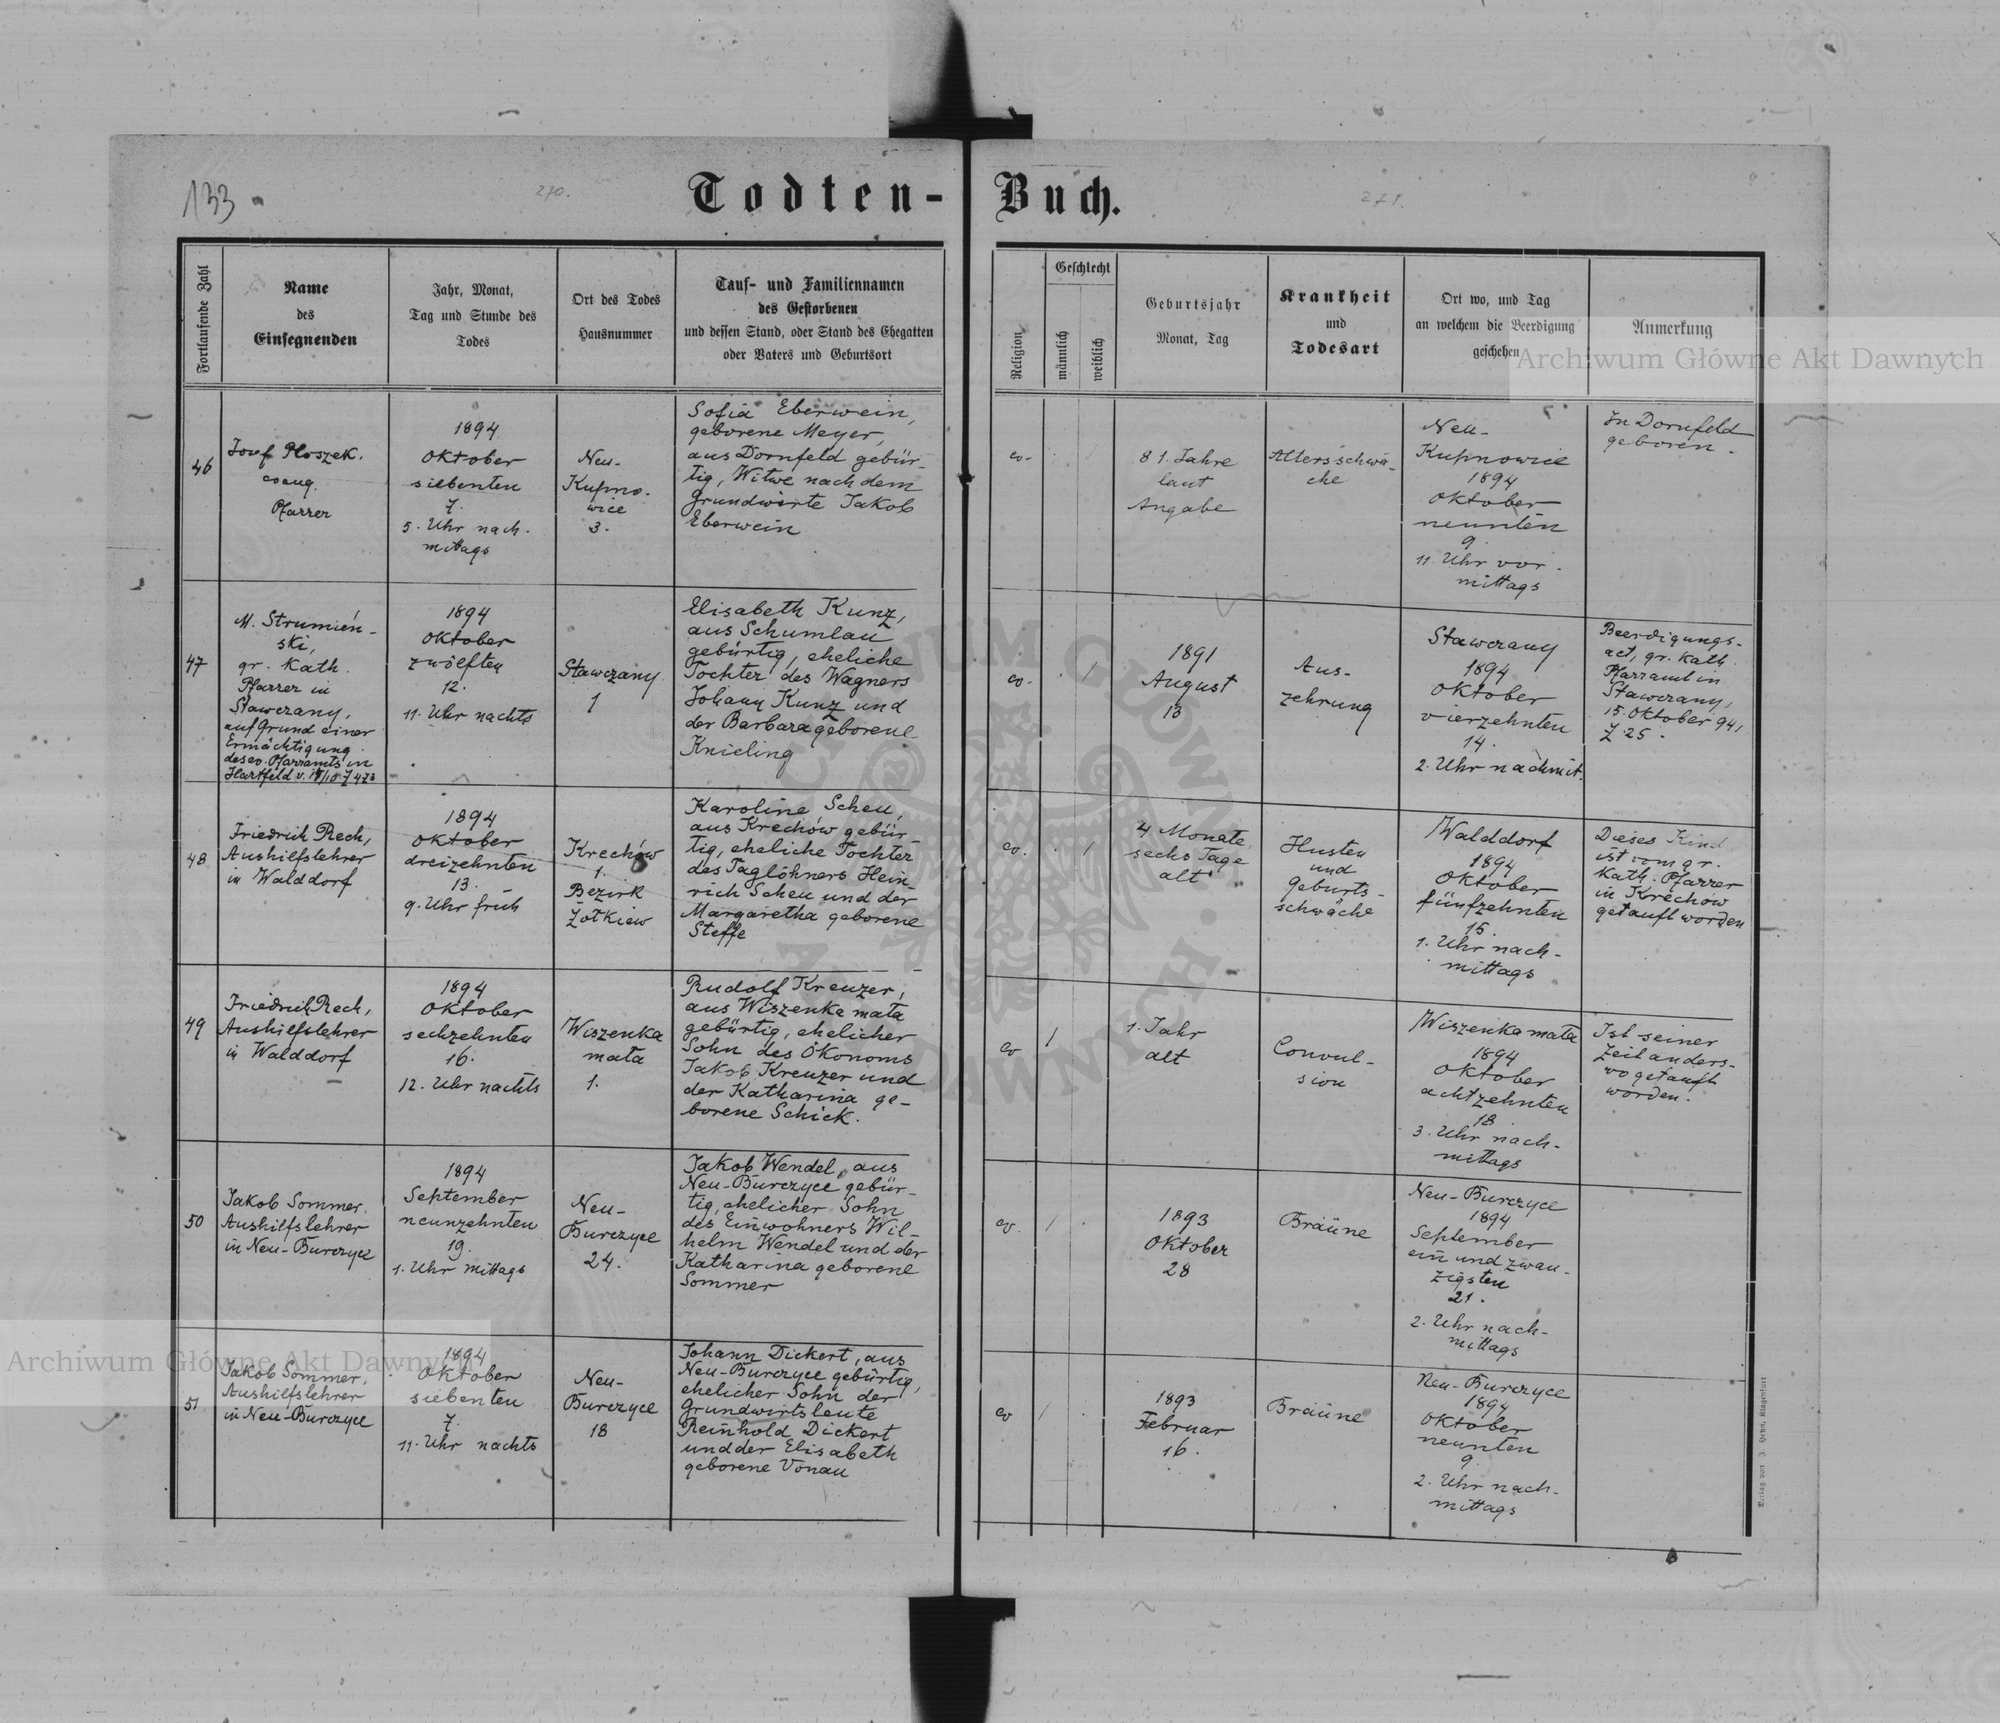 133
270.
Todten-Buch.
271.
Fortlaufende Zahl
Name
des
Einsegnenden
Jahr, Monat,
Tag und Stunde des
Todes
Ort des Todes
Hausnummer
Tauf- und Familiennamen
des Gestorbenen
und dessen Stand, oder Stand des Ehegatten
oder Vaters und Geburtsort
Religion
Geschlecht
männlich
weiblich
Geburtsjahr
Monat, Tag
Krankheit
und
Todesart
Ort wo, und Tag
an welchem die Beerdigung
geschehen
Anmerkung
46
Josef Ploszek,
evang.
Pfarrer
1894
Oktober
siebenten
7.
5. Uhr nach-
mittags
Neu-
Kupno-
wice
3.
Sofia Eberwein,
geborene Meyer,
aus Dornfeld gebür-
tig, Witwe nach dem
Grundwirte Jakob
Eberwein
ev.
/
81 Jahre
laut
Angabe
Altersschwä-
che
Neu-
Kupnowice
1894
Oktober
neunten
9.
11. Uhr vor-
mittags
In Dornfeld
geboren.
47
M. Strumień-
ski,
gr. kath.
Pfarrer in
Stawczany,
auf Grund einer
Ermächtigung
des ev. Pfarramts in
Hartfeld
1894
Oktober
zwölften
12.
11. Uhr nachts
Stawczany
1
Elisabeth Kunz,
aus Schumlau
gebürtig, eheliche
Tochter des Wagners
Johann Kunz und
der Barbara geborene
Knieling
ev.
/
1891
August
13
Aus-
zehrung
Stawczany
1894
Oktober
vierzehnten
14.
2. Uhr nachmit.
Beerdigungs-
act, gr. kath.
Pfarramt in
Stawczany,
15. Oktober 94,
Z 25.
48
Friedrich Rech,
Aushilfslehrer
in Walddorf
1894
Oktober
dreizehnten
13.
9. Uhr früh
Krechów
1.
Bezirk
Żołkiew
Karoline Scheu,
aus Krechów gebür-
tig, eheliche Tochter
des Taglöhners Hein-
rich Scheu und der
Margaretha geborene
Steffe
ev.
/
4 Monate,
sechs Tage
alt
Husten
und
Geburts-
schwäche
Walddorf
1894
Oktober
fünfzehnten
15.
1. Uhr nach-
mittags
Dieses Kind
ist vom gr.
kath. Pfarrer
in Krechow
getauft worden
49
Friedrich Rech,
Aushilfslehrer
in Walddorf
1894
Oktober
sechzehnten
16.
12. Uhr nachts
Wiszenka
mała
1.
Rudolf Kreuzer,
aus Wiszenka mała
gebürtig, ehelicher
Sohn des Ökonoms
Jakob Kreuzer und
der Katharina ge-
borene Schick.
ev
/
1. Jahr
alt
Convul-
sion
Wiszenka mała
1894
Oktober
achtzehnten
18.
3. Uhr nach-
mittags
Ist seiner
Zeit anders-
wo getauft
worden.
50
Jakob Sommer,
Aushilfslehrer
in Neu-Burczyce
1894
September
neunzehnten
19.
1. Uhr mittags
Neu-
Burczyce
24.
Jakob Wendel, aus
Neu-Burczyce gebür-
tig, ehelicher Sohn
des Einwohners Wil-
helm Wendel und der
Katharina geborene
Sommer
ev.
/
1893
Oktober
28
Bräüne
Neu-Burczyce
1894
September
ein und zwan-
zigsten
21.
2. Uhr nach-
mittags
51
Jakob Sommer,
Aushilfslehrer
in Neu-Burczyce
1894
Oktober
siebenten
7.
11. Uhr nachts
Neu-
Burczyce
18
Johann Dickert, aus
Neu-Burczyce gebürtig,
ehelicher Sohn der
Grundwirtsleute
Reinhold Dickert
und der Elisabeth
geborene Vonau
ev
/
1893
Februar
16.
Bräüne
Neu-Burczyce
1894
Oktober
neunten
9.
2. Uhr nach-
mittags
Archiwum Główne Akt Dawnych
Archiwum Główne Akt Dawnych